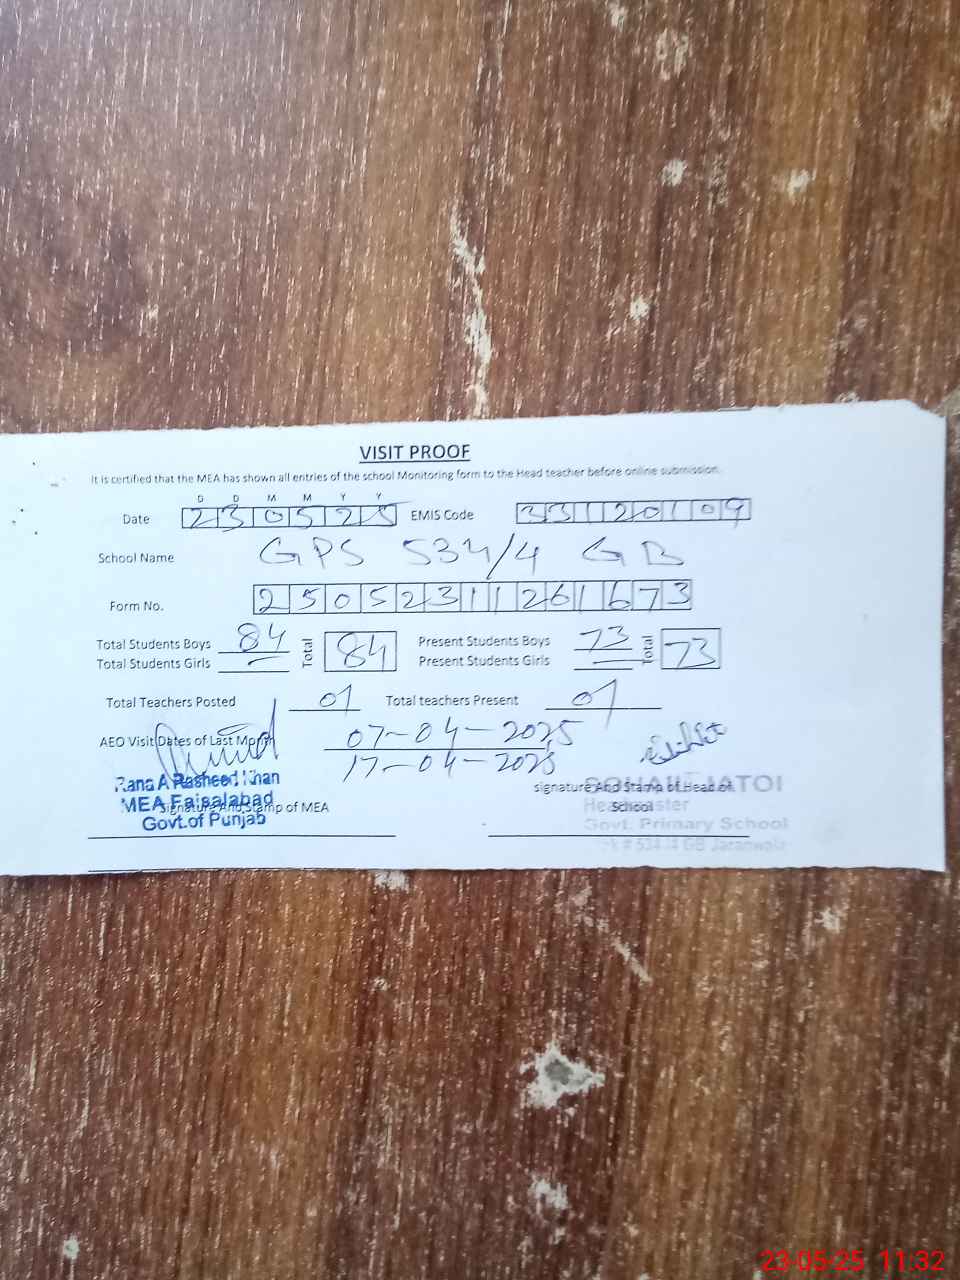 VISIT PROOF
It is certified that the MEA has shown all entries of the school Monitoring form to the Head teacher before online submission.
D D M M Y Y
Date 230525 EMIS Code 33120109
School Name GPS 534/4 GB
Form No. 25052311261673
Total Students Boys 84 Total 84 Present Students Boys 73 Total 73
Total Students Girls — Present Students Girls —
Total Teachers Posted 01 Total teachers Present 01
AEO Visit Dates of Last Month 07-04-2025
17-04-2025
Rana A Rasheed Khan
MEA Faisalabad
Govt.of Punjab
Signature And Stamp of MEA
signature And Stamp of Head of School
SOHAIL JATOI
Headmaster
Govt. Primary School
GB Jaranwala
23-05-25 11:32